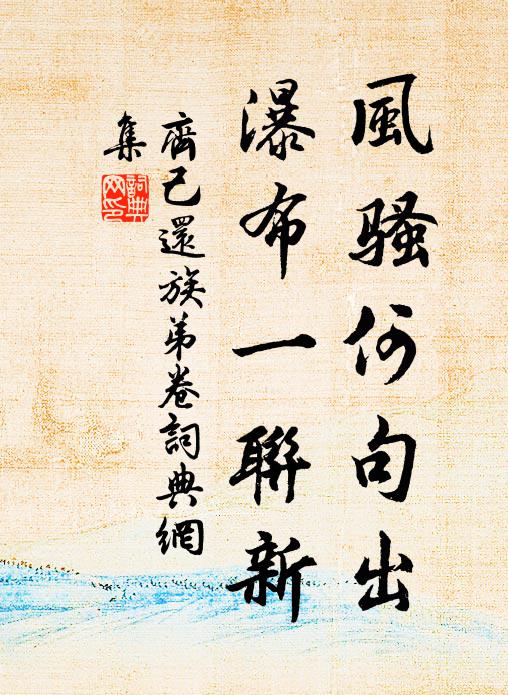 風騷何句出
瀑布一聯新
齊己還族弟卷詞典網
集
詞典
网印